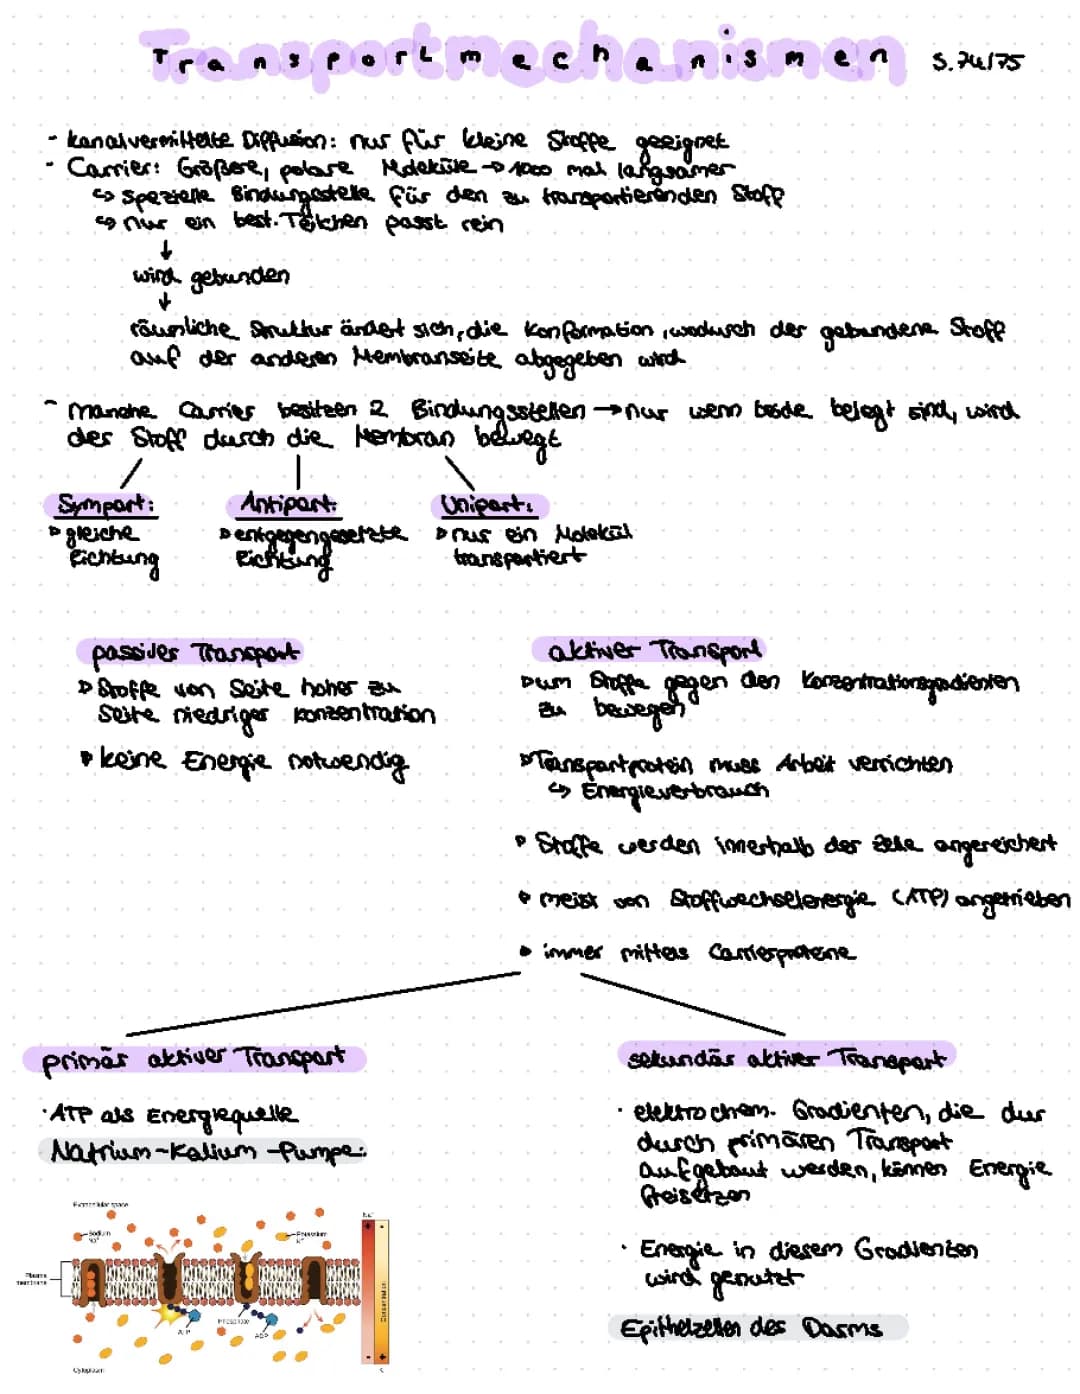 Transportmechanismen S.74/75
- kanalvermittelte Diffusion: nur für kleine Stoffe geeignet
- Carrier: Größere, polare Moleküle → 1000 mal langsamer
↳ spezielle Bindungsstelle für den zu transportierenden Stoff
↳ nur ein best. Teilchen passt rein
↓
wird gebunden
↓
räumliche Struktur ändert sich, die Konformation, wodurch der gebundene Stoff
auf der anderen Membranseite abgegeben wird
- manche Carrier besitzen 2 Bindungsstellen → nur wenn beide belegt sind, wird
der Stoff durch die Membran bewegt
Symport: Antiport: Uniport:
▷ gleiche ▷ entgegengesetzte ▷ nur ein Molekül
Richtung Richtung transportiert
passiver Transport
▷ Stoffe von Seite hoher zu
Seite niedriger Konzentration
▷ keine Energie notwendig
aktiver Transport
▷ um Stoffe gegen den Konzentrationsgradienten
zu bewegen
▷ Transportprotein muss Arbeit verrichten
↳ Energieverbrauch
▷ Stoffe werden innerhalb der Zelle angereichert
▷ meist von Stoffwechselenergie (ATP) angetrieben
▷ immer mittels Carrierproteine
primär aktiver Transport
· ATP als Energiequelle
Natrium-Kalium-Pumpe:
Extracellular space
Sodium
Na⁺
Potassium
K⁺
Na⁺
Plasma
membrane
Concentration
Phosphate
ATP
ADP
Cytoplasm
K
sekundär aktiver Transport
· elektrochem. Gradienten, die dur
durch primären Transport
aufgebaut werden, können Energie
freisetzen
· Energie in diesem Gradienten
wird genutzt
Epithelzellen des Darms